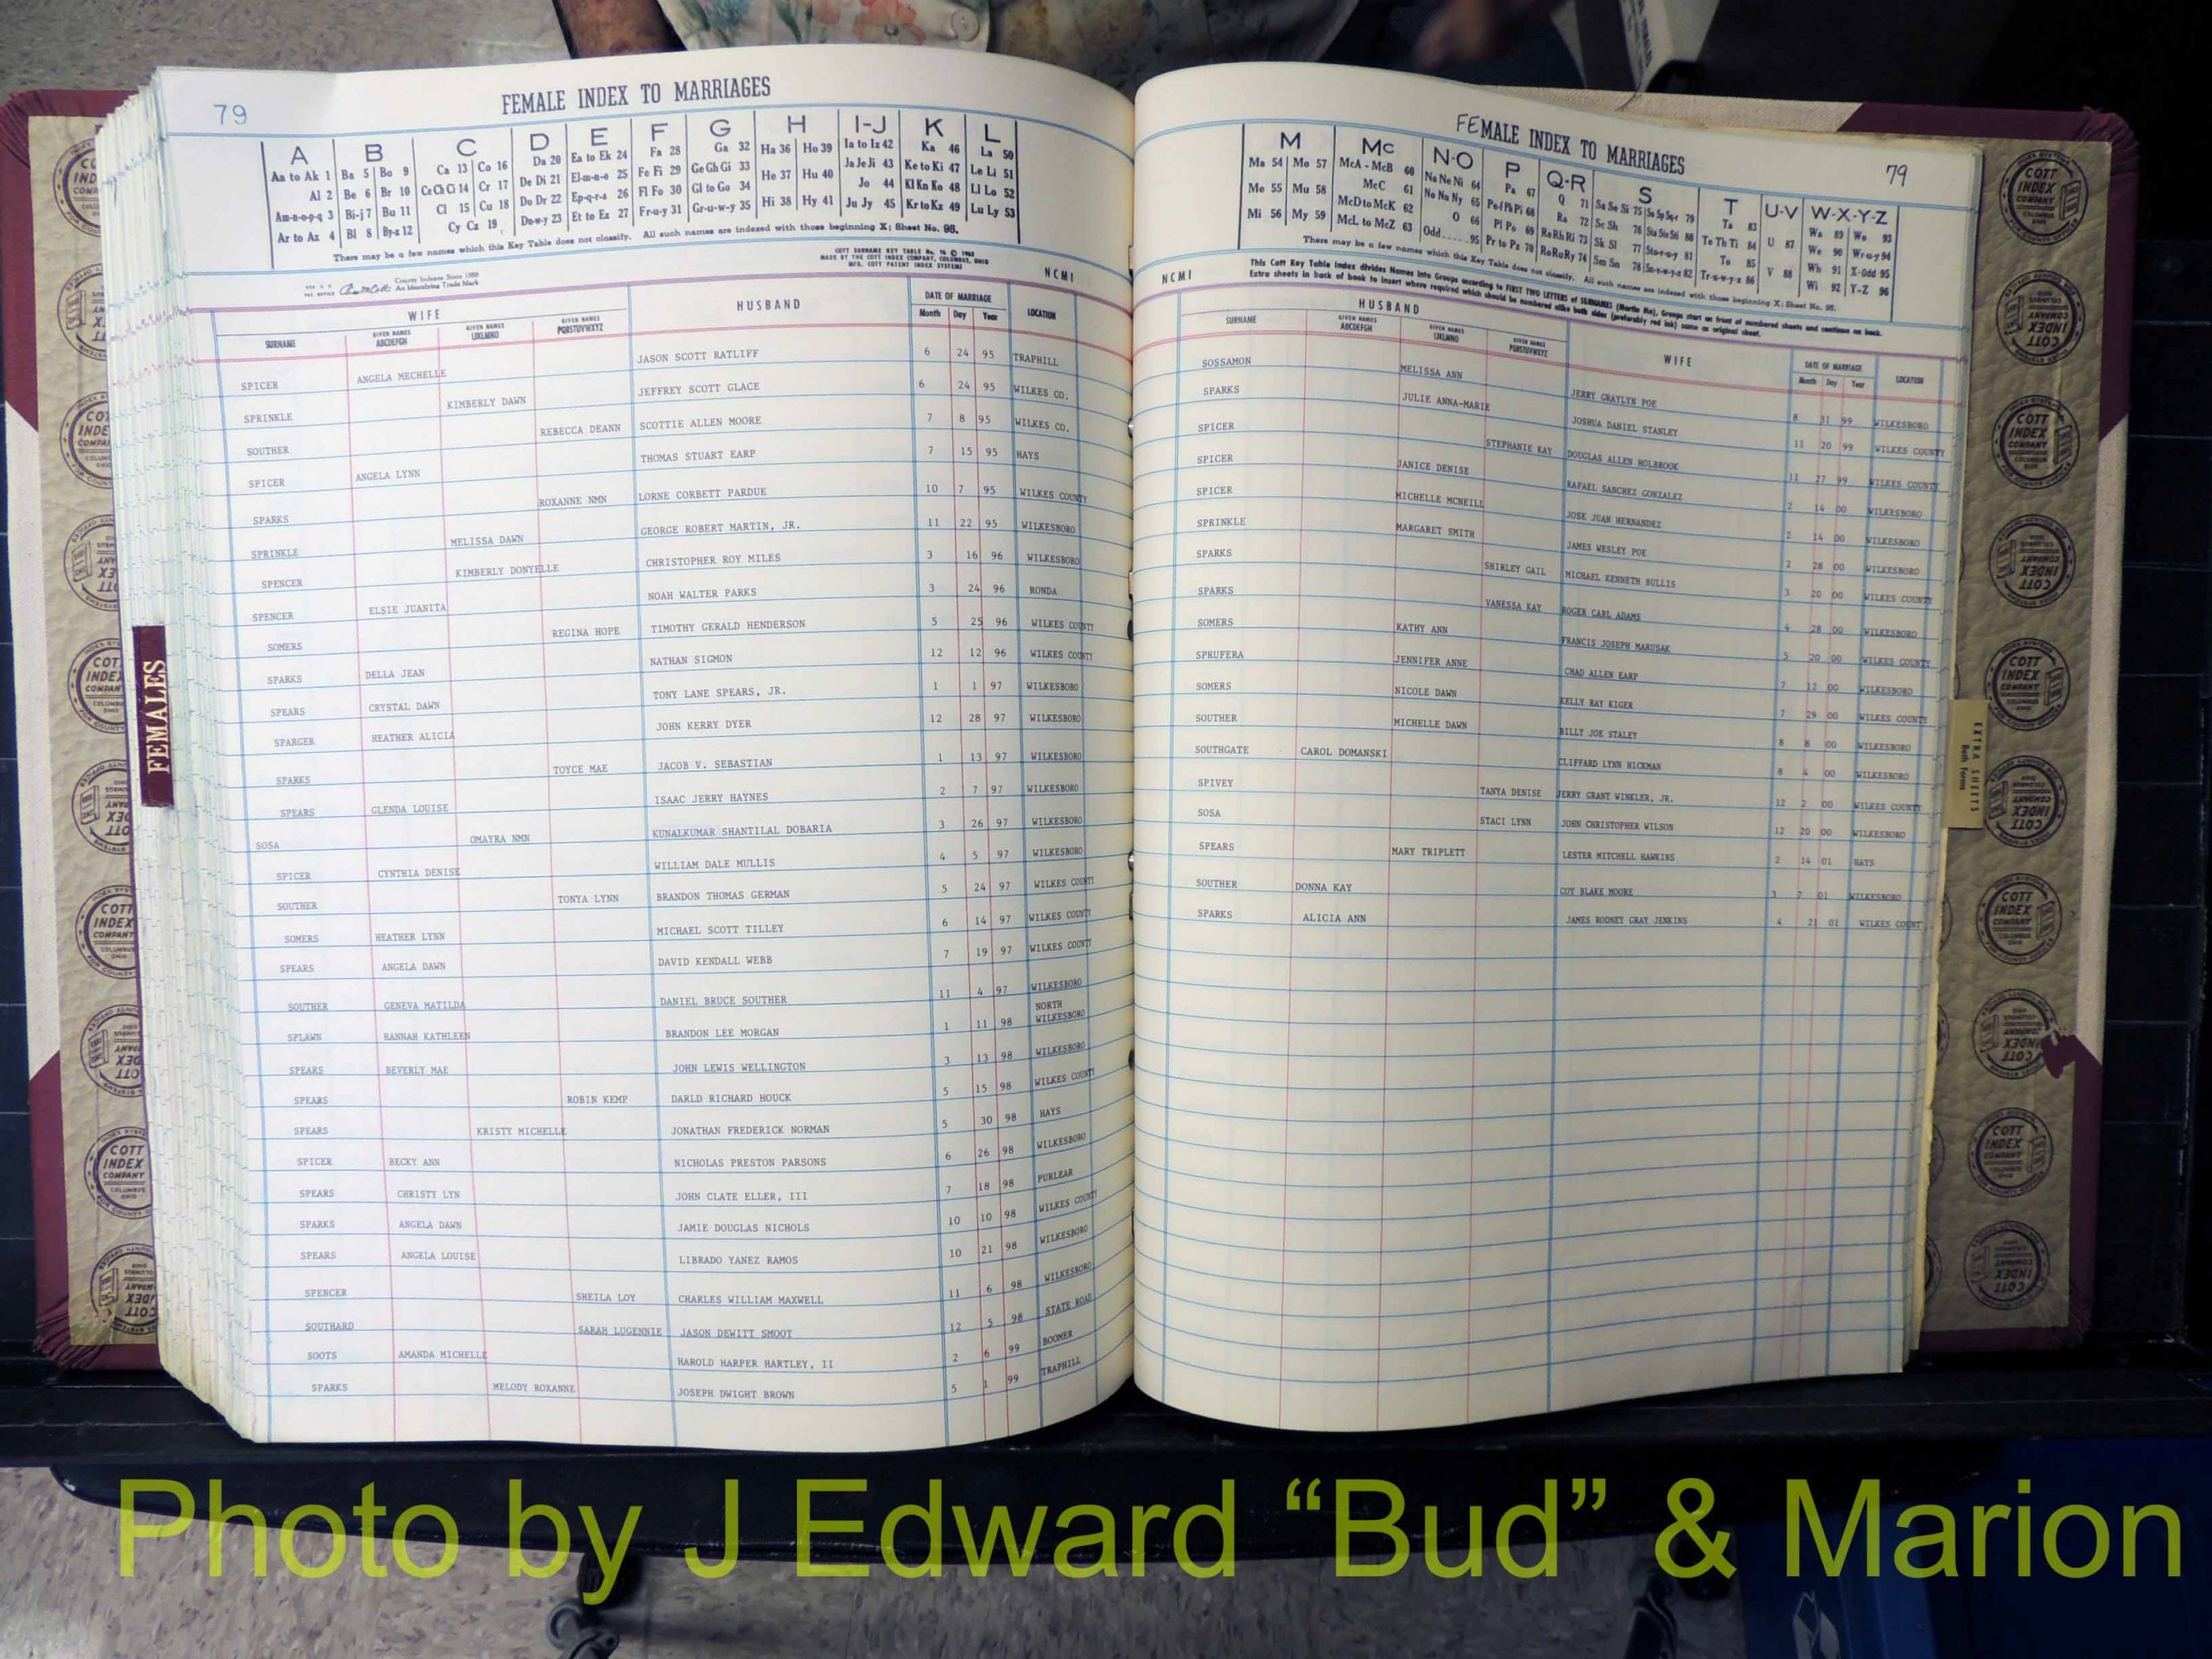 79
FEMALE INDEX TO MARRIAGES
A B C D E F G H I-J K L
Aa to Ak 1 Ba 5 Bo 9 Ca 13 Co 16 Da 20 Ea to Ek 24 Fa 28 Ga 32 Ha 36 Ho 39 Ia to Iz 42 Ka 46 La 50
Al 2 Be 6 Br 10 Ce Ch Ci 14 Cr 17 De Di 21 El-m-n-o 25 Fe Fi 29 Ge Gh Gi 33 He 37 Hu 40 Ja Je Ji 43 Ke to Ki 47 Le Li 51
Am-n-o-p-q 3 Bi-j 7 Bu 11 Cl 15 Cu 18 Do Dr 22 Ep-q-r-s 26 Fl Fo 30 Gl to Go 34 Hi 38 Hy 41 Jo 44 Kl Kn Ko 48 Ll Lo 52
Ar to Az 4 Bl 8 By-z 12 Cy Cz 19 Du-w-y 23 Et to Ez 27 Fr-u-y 31 Gr-u-w-y 35 Ju Jy 45 Kr to Kz 49 Lu Ly 53
There may be a few names which this Key Table does not classify. All such names are indexed with those beginning X; Sheet No. 95.
COTT SURNAME KEY TABLE No. 96 © 1962
MADE BY THE COTT INDEX COMPANY, COLUMBUS, OHIO
MFG. COTT PATENT INDEX SYSTEMS
NCMI
County Indexes Since 1888
An Identifying Trade Mark
WIFE HUSBAND DATE OF MARRIAGE LOCATION
SURNAME GIVEN NAMES ABCDEFGH GIVEN NAMES IJKLMNO GIVEN NAMES PQRSTUVWXYZ Month Day Year
SPICER ANGELA MECHELLE JASON SCOTT RATLIFF 6 24 95 TRAPHILL
SPRINKLE KIMBERLY DAWN JEFFREY SCOTT GLACE 6 24 95 WILKES CO.
SOUTHER REBECCA DEANN SCOTTIE ALLEN MOORE 7 8 95 WILKES CO.
SPICER ANGELA LYNN THOMAS STUART EARP 7 15 95 HAYS
SPARKS ROXANNE NMN LORNE CORBETT PARDUE 10 7 95 WILKES COUNTY
SPRINKLE MELISSA DAWN GEORGE ROBERT MARTIN, JR. 11 22 95 WILKESBORO
SPENCER KIMBERLY DONYELLE CHRISTOPHER ROY MILES 3 16 96 WILKESBORO
SPENCER ELSIE JUANITA NOAH WALTER PARKS 3 24 96 RONDA
SOMERS REGINA HOPE TIMOTHY GERALD HENDERSON 5 25 96 WILKES COUNTY
SPARKS DELLA JEAN NATHAN SIGMON 12 12 96 WILKES COUNTY
SPEARS CRYSTAL DAWN TONY LANE SPEARS, JR. 1 1 97 WILKESBORO
SPARGER HEATHER ALICIA JOHN KERRY DYER 12 28 97 WILKESBORO
SPARKS TOYCE MAE JACOB V. SEBASTIAN 1 13 97 WILKESBORO
SPEARS GLENDA LOUISE ISAAC JERRY HAYNES 2 7 97 WILKESBORO
SOSA OMAYRA NMN KUNALKUMAR SHANTILAL DOBARIA 3 26 97 WILKESBORO
SPICER CYNTHIA DENISE WILLIAM DALE MULLIS 4 5 97 WILKESBORO
SOUTHER TONYA LYNN BRANDON THOMAS GERMAN 5 24 97 WILKES COUNTY
SOMERS HEATHER LYNN MICHAEL SCOTT TILLEY 6 14 97 WILKES COUNTY
SPEARS ANGELA DAWN DAVID KENDALL WEBB 7 19 97 WILKES COUNTY
SOUTHER GENEVA MATILDA DANIEL BRUCE SOUTHER 11 4 97 WILKESBORO
SPLAWN HANNAH KATHLEEN BRANDON LEE MORGAN 1 11 98 NORTH WILKESBORO
SPEARS BEVERLY MAE JOHN LEWIS WELLINGTON 3 13 98 WILKESBORO
SPEARS ROBIN KEMP DARLD RICHARD HOUCK 5 15 98 WILKES COUNTY
SPEARS KRISTY MICHELLE JONATHAN FREDERICK NORMAN 5 30 98 HAYS
SPICER BECKY ANN NICHOLAS PRESTON PARSONS 6 26 98 WILKESBORO
SPEARS CHRISTY LYN JOHN CLATE ELLER, III 7 18 98 PURLEAR
SPARKS ANGELA DAWN JAMIE DOUGLAS NICHOLS 10 10 98 WILKES COUNTY
SPEARS ANGELA LOUISE LIBRADO YANEZ RAMOS 10 21 98 WILKESBORO
SPENCER SHEILA LOY CHARLES WILLIAM MAXWELL 11 6 98 WILKESBORO
SOUTHARD SARAH LUGENNIE JASON DEWITT SMOOT 12 5 98 STATE ROAD
SOOTS AMANDA MICHELLE HAROLD HARPER HARTLEY, II 2 6 99 BOOMER
SPARKS MELODY ROXANNE JOSEPH DWIGHT BROWN 5 1 99 TRAPHILL
FEMALES
FEMALE INDEX TO MARRIAGES
79
M Mc N-O P Q-R S T U-V W-X-Y-Z
Ma 54 Mo 57 McA - McB 60 Na Ne Ni 64 Pa 67 Q 71 Sa Se Si 75 So Sp Sq-r 79 Ta 83 Wa 89 Wo 93
Me 55 Mu 58 McC 61 No Nu Ny 65 Pe-f Ph Pi 68 Ra 72 Sc Sh 76 Sta Ste Sti 80 Te Th Ti 84 U 87 We 90 Wr-u-y 94
Mi 56 My 59 McD to McK 62 O 66 Pl Po 69 Re Rh Ri 73 Sk Sl 77 Sto-r-u-y 81 To 85 Wh 91 X-Odd 95
McL to McZ 63 Odd 95 Pr to Pz 70 Ro Ru Ry 74 Sm Sn 78 Su-v-w-y-z 82 Tr-u-w-y-z 86 V 88 Wi 92 Y-Z 96
There may be a few names which this Key Table does not classify. All such names are indexed with those beginning X; Sheet No. 95.
NCMI
This Cott Key Table Index divides Names into Groups according to FIRST TWO LETTERS of SURNAMES (Martin Ma), Groups start on front of numbered sheets and continue on back.
Extra sheets in back of book to insert where required which should be numbered alike both sides (preferably red ink) same as original sheet.
HUSBAND WIFE DATE OF MARRIAGE LOCATION
SURNAME GIVEN NAMES ABCDEFGH GIVEN NAMES IJKLMNO GIVEN NAMES PQRSTUVWXYZ Month Day Year
SOSSAMON MELISSA ANN JERRY GRAYLYN POE 8 31 99 WILKESBORO
SPARKS JULIE ANNA-MARIE JOSHUA DANIEL STANLEY 11 20 99 WILKES COUNTY
SPICER STEPHANIE KAY DOUGLAS ALLEN HOLBROOK 11 27 99 WILKES COUNTY
SPICER JANICE DENISE RAFAEL SANCHEZ GONZALEZ 2 14 00 WILKESBORO
SPICER MICHELLE MCNEILL JOSE JUAN HERNANDEZ 2 14 00 WILKESBORO
SPRINKLE MARGARET SMITH JAMES WESLEY POE 2 28 00 WILKESBORO
SPARKS SHIRLEY GAIL MICHAEL KENNETH BULLIS 3 20 00 WILKES COUNTY
SPARKS VANESSA KAY ROGER CARL ADAMS 4 28 00 WILKESBORO
SOMERS KATHY ANN FRANCIS JOSEPH MARUSAK 5 20 00 WILKES COUNTY
SPRUFERA JENNIFER ANNE CHAD ALLEN EARP 7 12 00 WILKESBORO
SOMERS NICOLE DAWN KELLY RAY KIGER 7 29 00 WILKES COUNTY
SOUTHER MICHELLE DAWN BILLY JOE STALEY 8 8 00 WILKESBORO
SOUTHGATE CAROL DOMANSKI CLIFFARD LYNN HICKMAN 8 4 00 WILKESBORO
SPIVEY TANYA DENISE JERRY GRANT WINKLER, JR. 12 2 00 WILKES COUNTY
SOSA STACI LYNN JOHN CHRISTOPHER WILSON 12 20 00 WILKESBORO
SPEARS MARY TRIPLETT LESTER MITCHELL HAWKINS 2 14 01 HAYS
SOUTHER DONNA KAY COY BLAKE MOORE 3 2 01 WILKESBORO
SPARKS ALICIA ANN JAMES RODNEY GRAY JENKINS 4 21 01 WILKES COUNT
EXTRA SHEETS
Both Forms
COTT INDEX COMPANY
COLUMBUS OHIO
Photo by J Edward “Bud” & Marion